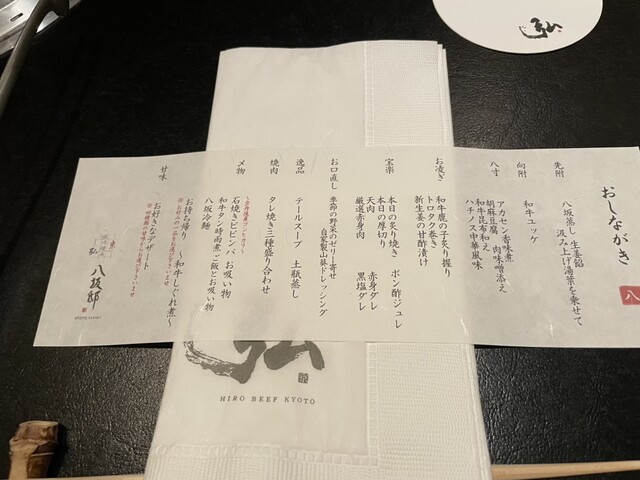 おしながき
八
先附
八坂蒸し 生姜餡
汲み上げ湯葉を乗せて
向附
和牛ユッケ
八寸
アカセン香味煮
胡麻豆腐 肉味噌添え
和牛昆布和え
ハチノス中華風味
お凌ぎ
和牛鹿の子炙り握り
トロタク巻き
新生姜の甘酢漬け
宝楽
本日の炙り焼き ポン酢ジュレ
本日の厚切り
天肉 赤身ダレ
厳選赤身肉 黒塩ダレ
お口直し
季節の野菜のゼリー寄せ
自家製山葵ドレッシング
逸品
テールスープ 土瓶蒸し
焼肉
タレ焼き三種盛り合わせ
〆物
石焼きビビンバ お吸い物
和牛タン時雨煮ご飯とお吸い物
八坂冷麺
甘味
お好きなデザート
お持ち帰り 〜和牛しぐれ煮〜
弘 八坂邸
弘
HIRO BEEF KYOTO
弘